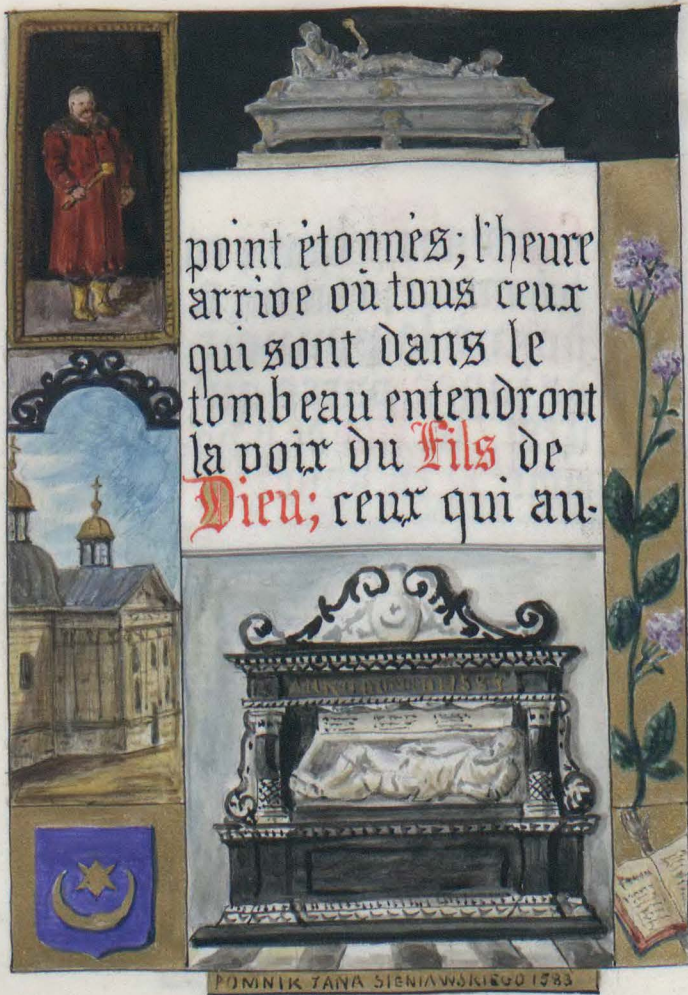 point étonnés; l'heure
arrive où tous ceux
qui sont dans le
tombeau entendront
la voix du Fils de
Dieu; ceux qui au-
POMNIK JANA SIENIAWSKIEGO 1583